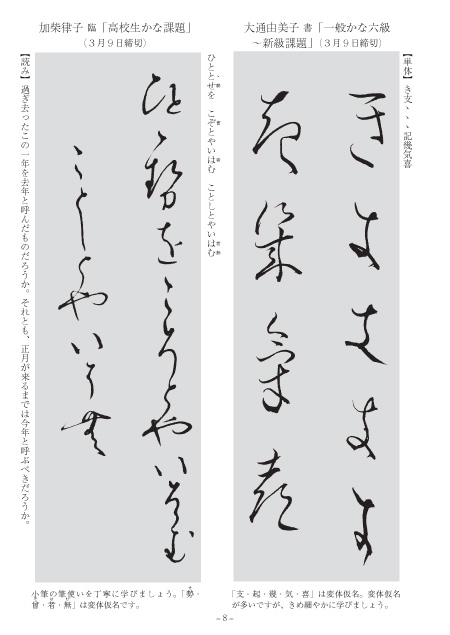 大通由美子 書「一般かな六級
～新級課題」(3月9日締切)
【単体】き支ヽヽヽ記幾気喜
き支支支支
起幾気喜
「支・起・幾・気・喜」は変体仮名。変体仮名
が多いですが、きめ細やかに学びましょう。
加柴律子 臨「高校生かな課題」
(3月9日締切)
ひととせを こぞとやいはむ ことしとやいはむ
ひとゝ勢をこそとやいはむ
ことしとやいは無
【読み】過ぎ去ったこの一年を去年と呼んだものだろうか。それとも、正月が来るまでは今年と呼ぶべきだろうか。
小筆の筆使いを丁寧に学びましょう。「勢・
曾・者・無」は変体仮名です。
－8－